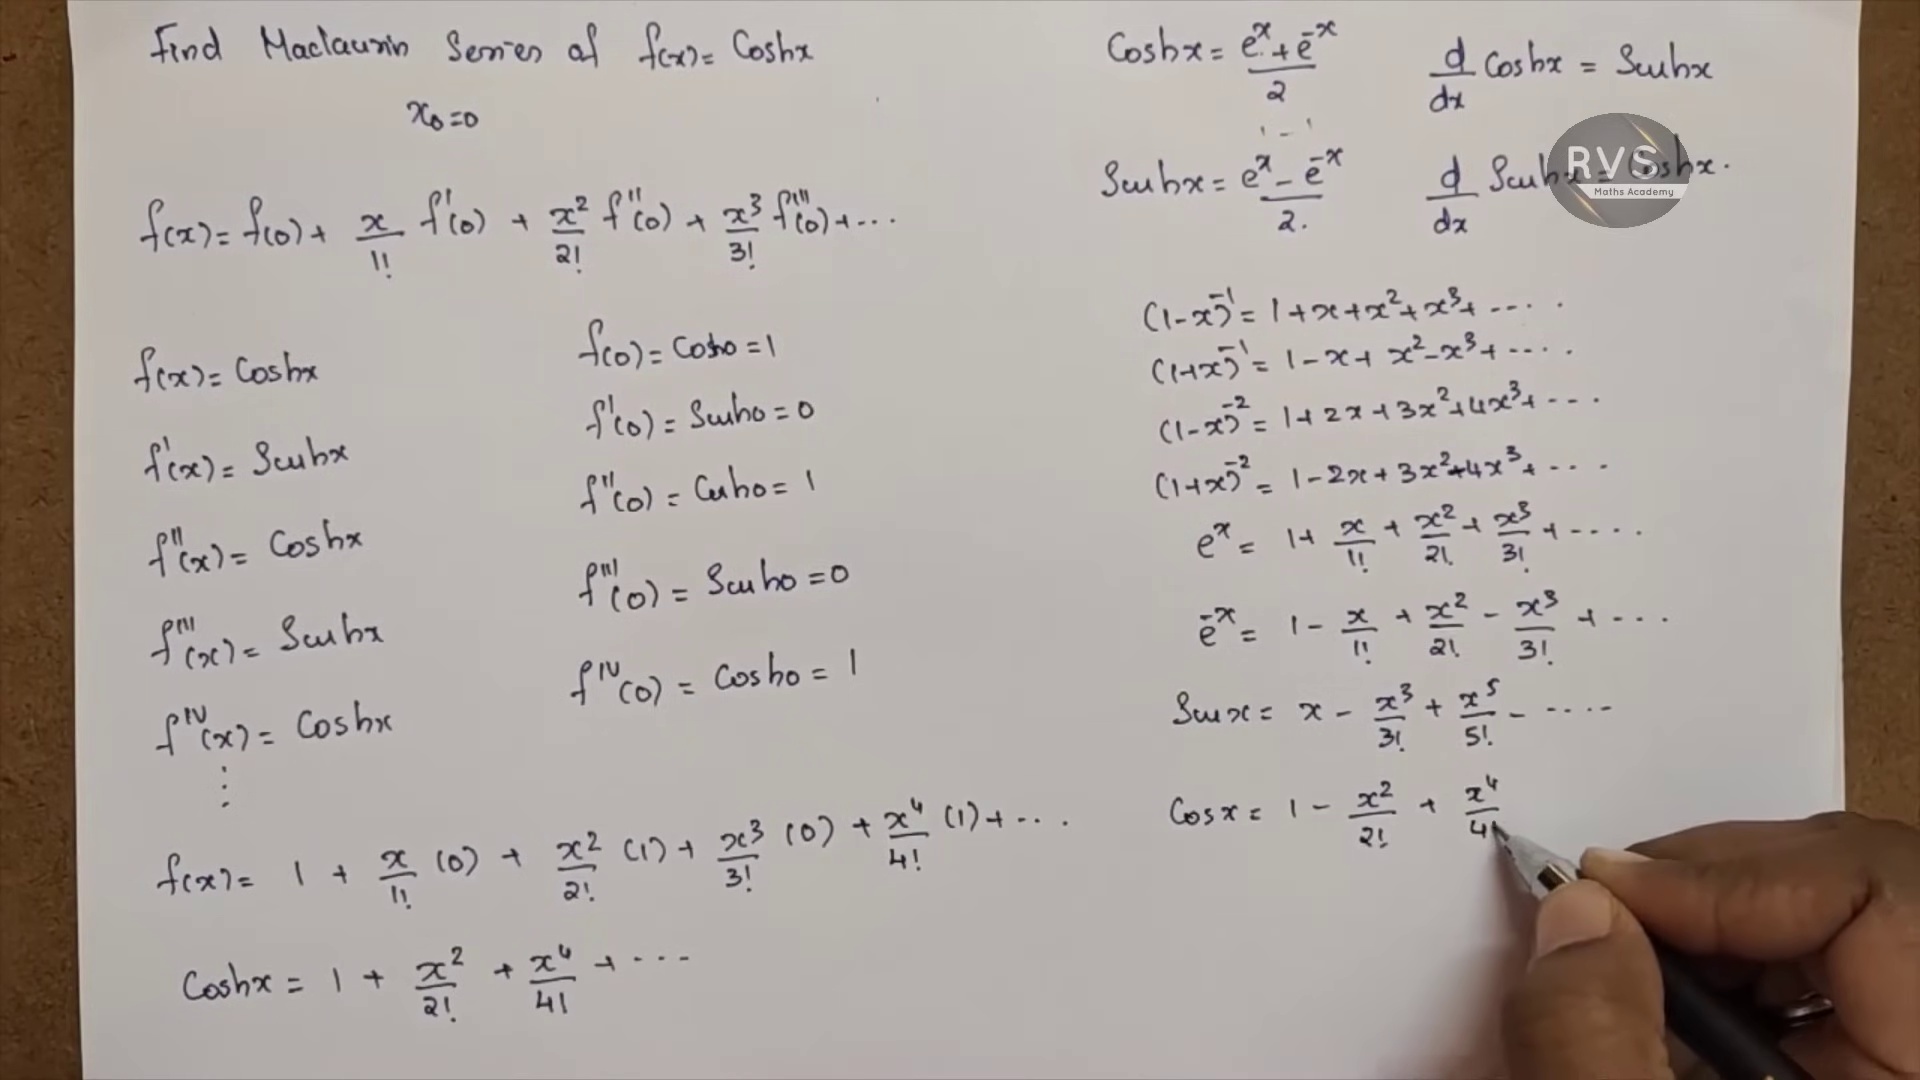 Find Maclaurin Series of f(x) = Coshx
x₀=0
f(x) = f(0) + x/1! f'(0) + x²/2! f''(0) + x³/3! f'''(0) + ...
f(x) = Coshx
f'(x) = Sinhx
f''(x) = Coshx
f'''(x) = Sinhx
f^IV(x) = Coshx
⋮
f(0) = Cosh0 = 1
f'(0) = Sinh0 = 0
f''(0) = Cosh0 = 1
f'''(0) = Sinh0 = 0
f^IV(0) = Cosh0 = 1
f(x) = 1 + x/1! (0) + x²/2! (1) + x³/3! (0) + x⁴/4! (1) + ...
Coshx = 1 + x²/2! + x⁴/4! + ...
Coshx = (e^x + e^-x)/2
d/dx Coshx = Sinhx
Sinhx = (e^x - e^-x)/2.
d/dx Sinhx = Coshx.
RVS
Maths Academy
(1-x)^-1 = 1+x+x²+x³+ ....
(1+x)^-1 = 1-x+x²-x³+ ....
(1-x)^-2 = 1+2x+3x²+4x³+ ...
(1+x)^-2 = 1-2x+3x²-4x³+ ...
e^x = 1 + x/1! + x²/2! + x³/3! + ....
e^-x = 1 - x/1! + x²/2! - x³/3! + ...
Sinx = x - x³/3! + x⁵/5! - ....
Cosx = 1 - x²/2! + x⁴/4!